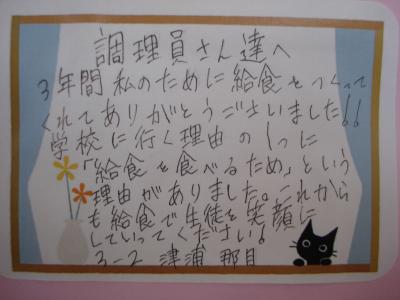 調理員さん達へ
3年間私のために給食をつくって
くれてありがとうございました!!
学校に行く理由の1つに
「給食を食べるため」という
理由がありました。これから
も給食で生徒を笑顔に
していってください!
3-2 津浦 那月